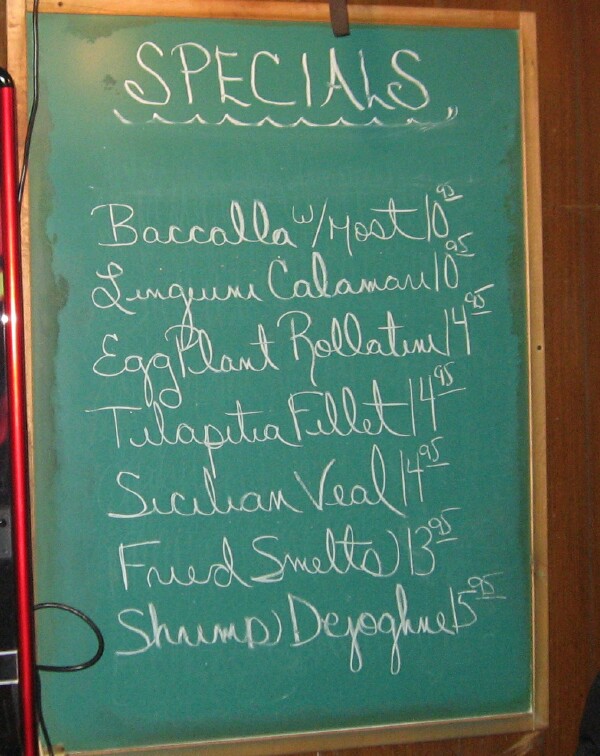 SPECIALS
Baccalla w/Most 10 95
Linguini Calamari 10 95
EggPlant Rollatini 14 95
Tilapitia Fillet 14 95
Sicilian Veal 14 95
Fried Smelts 13 95
Shrimp Dejoghne 15 95